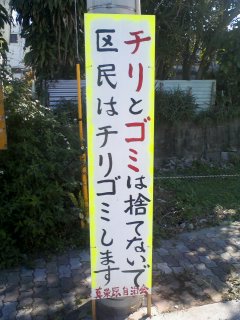 チリとゴミは捨てないで
区民はチリゴミします
真栄原自治会